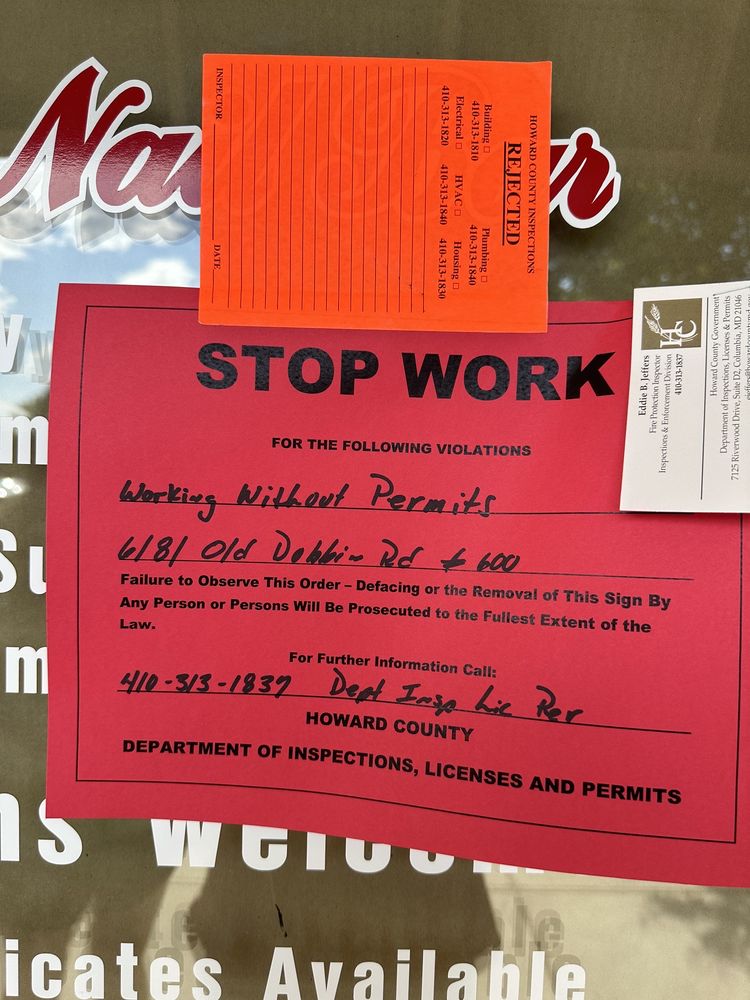 Na
r
HOWARD COUNTY INSPECTIONS
REJECTED
Building □ Plumbing □
410-313-1810 410-313-1840
Electrical □ HVAC □ Housing □
410-313-1820 410-313-1840 410-313-1830
INSPECTOR DATE
Eddie B. Jeffers
Fire Protection Inspector
Inspections & Enforcement Division
410-313-1837
Howard County Government
Department of Inspections, Licenses & Permits
7125 Riverwood Drive, Suite 102, Columbia, MD 21046
STOP WORK
FOR THE FOLLOWING VIOLATIONS
Working Without Permits
6181 Old Dobbin Rd # 600
Failure to Observe This Order – Defacing or the Removal of This Sign By
Any Person or Persons Will Be Prosecuted to the Fullest Extent of the
Law.
For Further Information Call:
410-313-1837 Dept Insp Lic Per
HOWARD COUNTY
DEPARTMENT OF INSPECTIONS, LICENSES AND PERMITS
m
Su
m
ns Welcom
icates Available